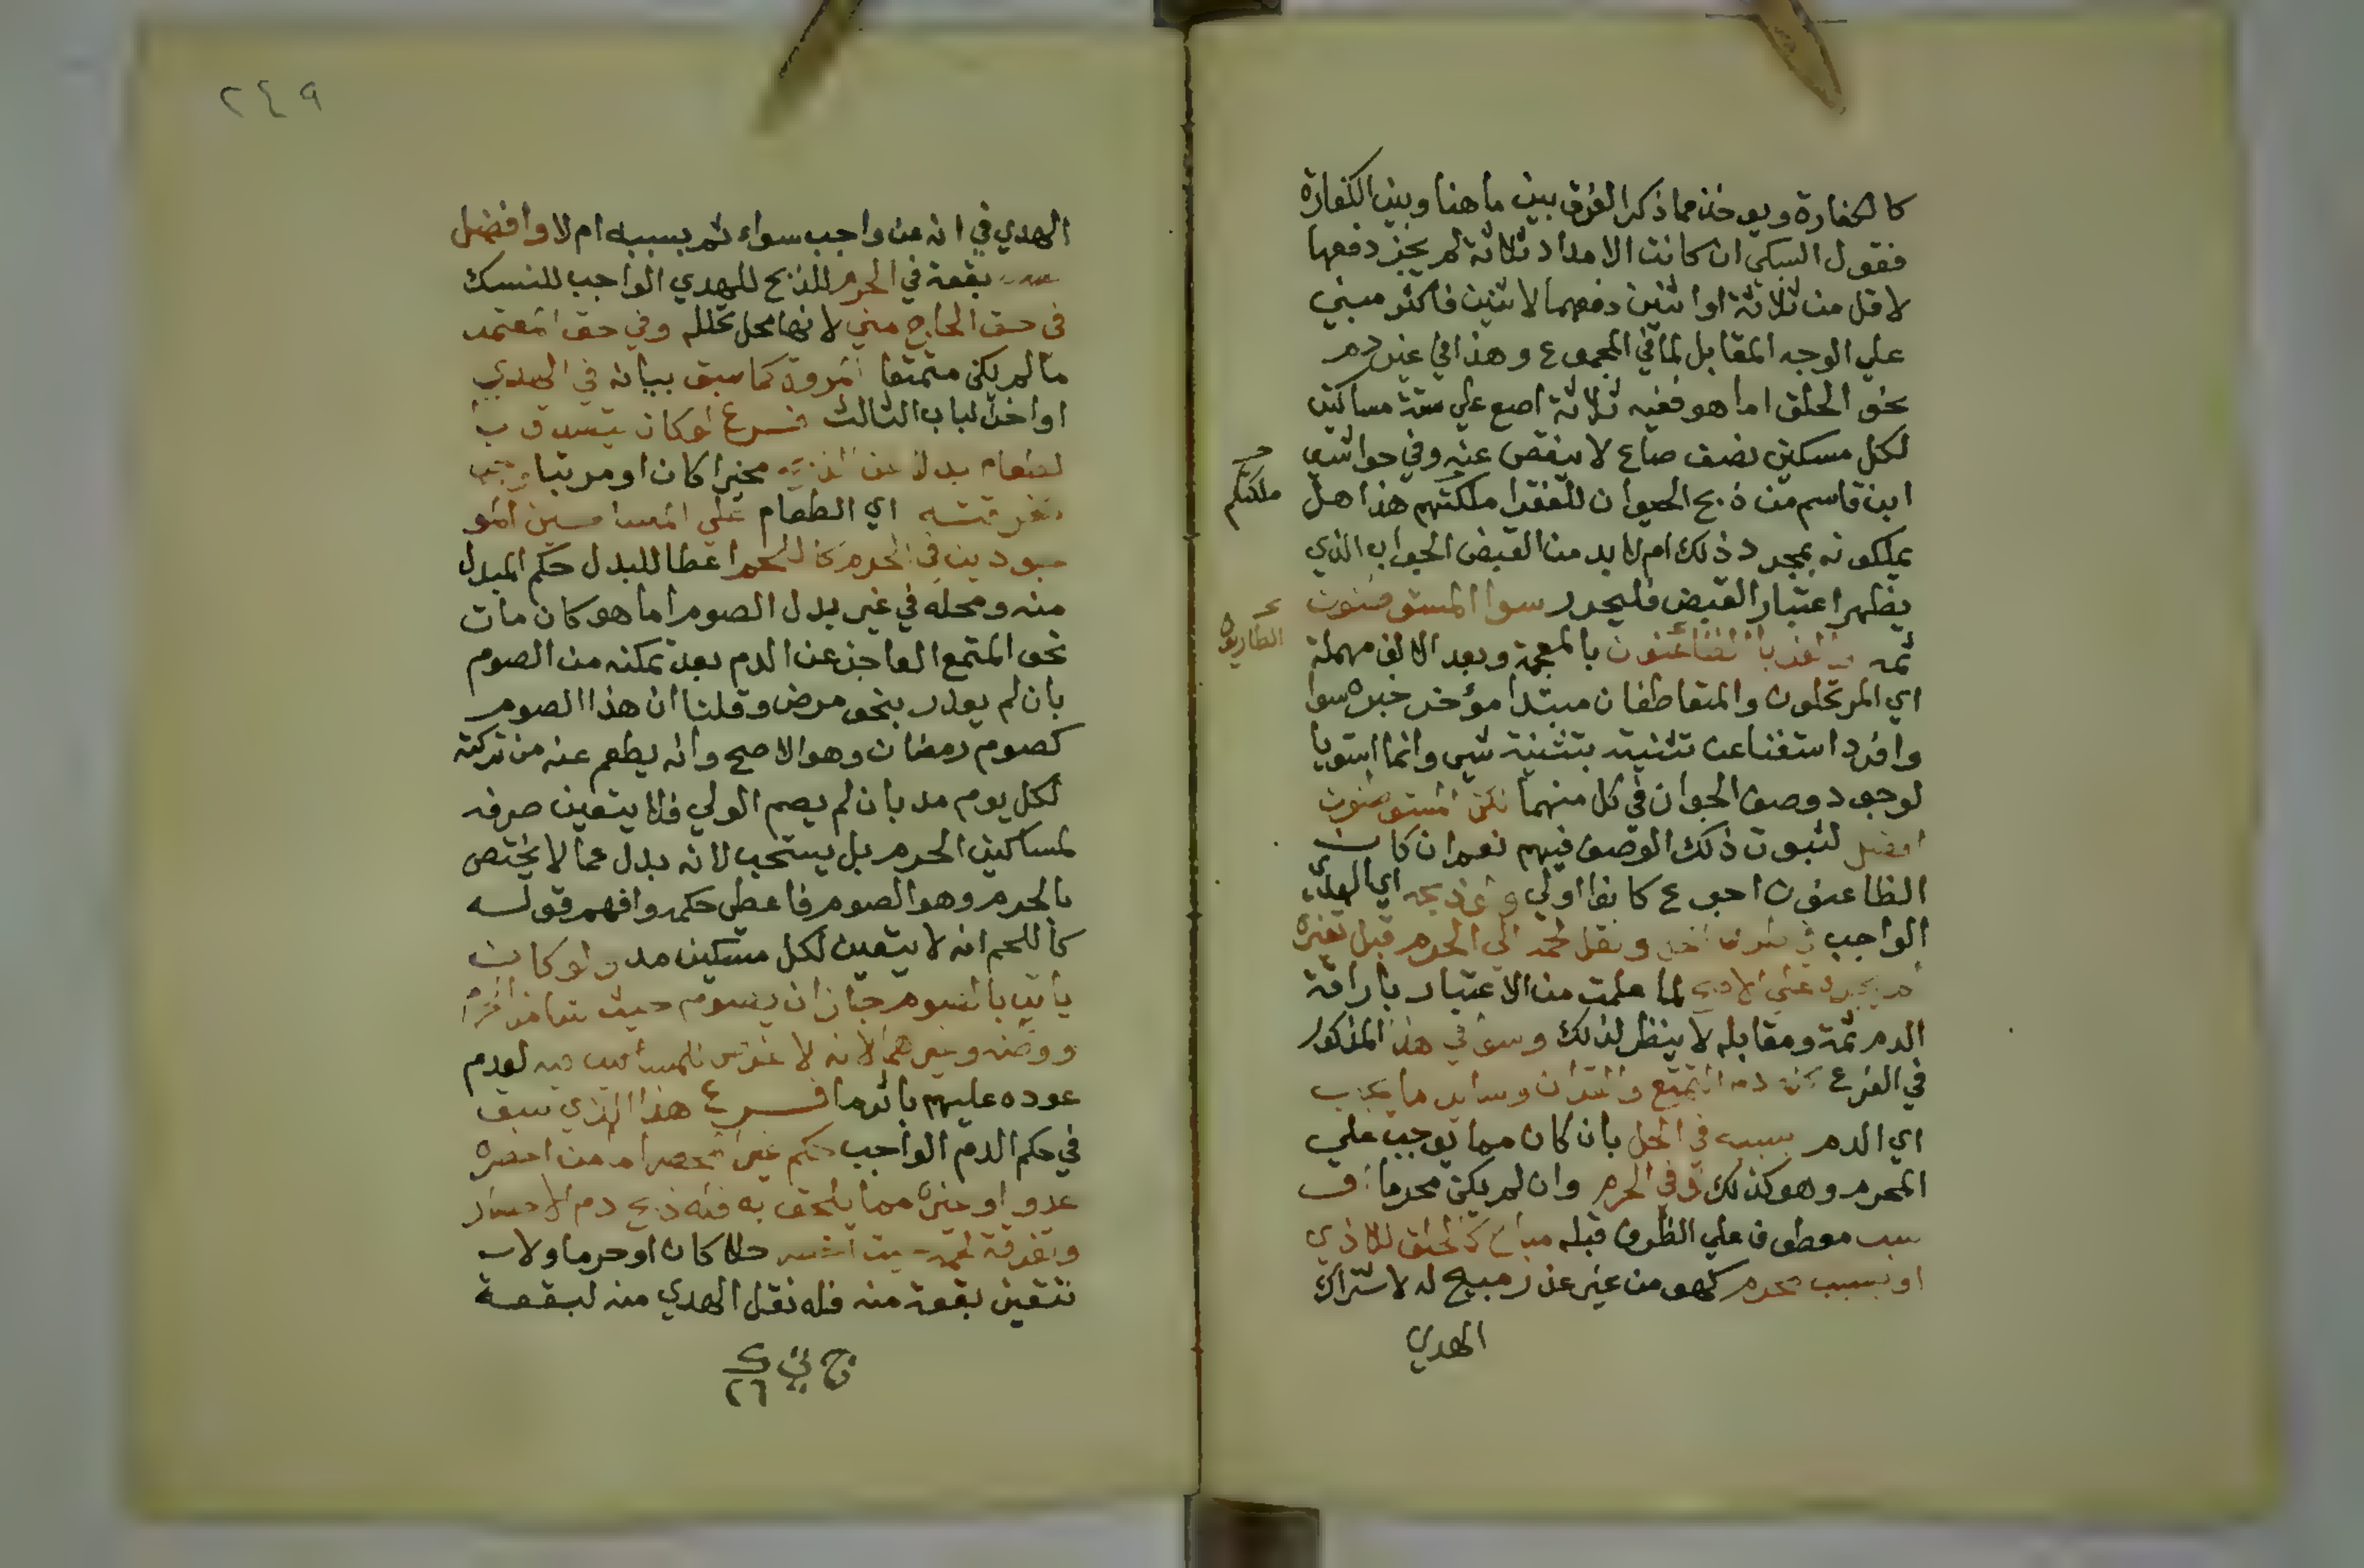 كالكفارة ويوخذ مما ذكر الفرق بين ما هنا وبين الكفارة
فقول السبكي ان كانت الامداد ثلاثة لم يجز دفعها
لاقل من ثلاثة او اثنين دفعهما لاثنين فاكثر مبني
علي الوجه المقابل لما في المجموع وهذا في غير دم
نحو الحلق اما هو ففيه ثلاثة اصع علي ستة مساكين
لكل مسكين نصف صاع لا ينقص عنه وفي حواشي
ابن قاسم من ذبح الحيوان للفقرا ملكتهم هذا هل
ملكتكم
يملكونه بمجرد ذلك ام لا بد من القبض الجواب الذي
يظهر اعتبار القبض فليحرر سوا المستوطنون
الطاريون
ثمه بالمعجمة وبعد الالف مهملة
اي المرتحلون والمتعاطفان مبتدا مؤخر خبره سوا
وافرد استغنا عن تثنيته بتثنية سي وانما استويا
لوجود وصف الجوار في كل منهما لكن المستوطنون
افضل لثبوت ذلك الوصف فيهم نعم ان كان
الظاعنون احوج كانوا اولي ولو ذبحه اي الهدي
الواجب في طرف اخر ونقل لحمه الي الحرم قبل تغيره
لم يجزه علي الاصح لما علمت من الاعتبار باراقة
الدم ثمة ومقابله لا ينظر لذلك وسوا في هذا المذكور
في الفرع كله دم التمتع والقران وساير ما يجب
اي الدم بسببه في الحل بان كان مما يوجب علي
المحرم وهو كذلك وفي الحرم وان لم يكن محرما او
سبب معطوف علي الظرف قبله مباح كالحلق للاذي
او بسبب محرم كهو من غير عذر مبيح له لاشتراك
الهدي
٢٤٩
الهدي في انه عن واجب سواء اثم بسببه ام لا وافضل
بقعة في الحرم للذبح للهدي الواجب للنسك
في حق الحاج مني لانها محل تحلله وفي حق المعتمر
ما لم يكن متمتعا المروة كما سبق بيانه في الهدي
اواخر الباب الثالث فرع لو كان يتصدق ب
لطعام بدلا عن الذبح مخيرا كان او مرتبا وجب
تفرقته اي الطعام علي المساكين المو
جودين في الحرم كاللحم اعطا للبدل حكم المبدل
منه ومحله في غير بدل الصوم اما هو كان مات
نحو المتمتع العاجز عن الدم بعد تمكنه من الصوم
بان لم يعذر بنحو مرض وقلنا ان هذا الصوم
كصوم رمضان وهو الاصح وانه يطعم عنه من تركته
لكل يوم مد بان لم يصم الولي فلا يتعين صرفه
لمساكين الحرم بل يستحب لانه بدل عما لا يختص
بالحرم وهو الصوم فاعطي حكمه وافهم قوله
كاللحم انه لا يتعين لكل مسكين مد ولو كان
ياتي بالصوم جاز ان يصوم حيث شا من الحرم
ووطنه وغيرهما لانه لا غرض للمساكين فيه لعدم
عوده عليهم بالدما فرع هذا الذي سبق
في حكم الدم الواجب حكم غير المحصر اما من احصره
عدو او غيره مما يلحق به فله ذبح دم الاحصار
وتفرقة لحمه حيث احصر حلا كان او حرما ولا
تتعين بقعة منه فله نقل الهدي منه لبقعة